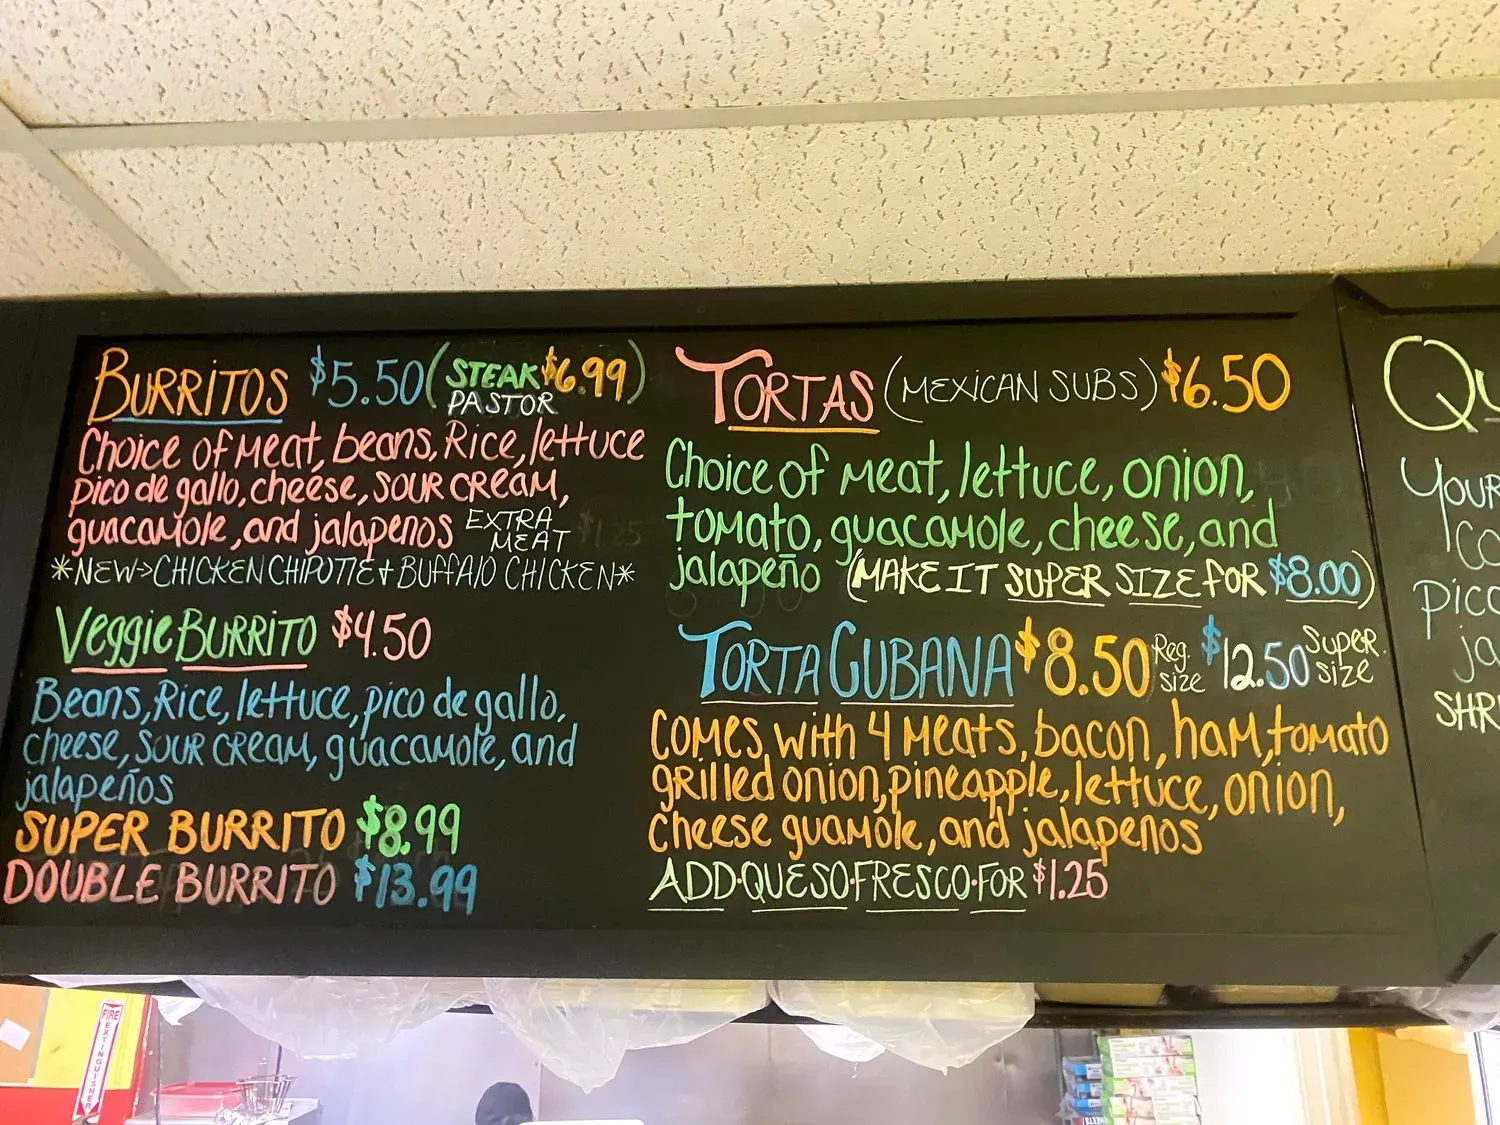 BURRITOS $5.50 (STEAK $6.99)
PASTOR
Choice of Meat, beans, Rice, lettuce
pico de gallo, cheese, SOUR CREAM,
guacamole, and jalapenos EXTRA MEAT $1.25
*NEW->CHICKEN CHIPOTLE + BUFFALO CHICKEN*
Veggie BURRITO $4.50
Beans, Rice, lettuce, pico de gallo,
cheese, SOUR CREAM, guacamole, and
jalapeños
SUPER BURRITO $8.99
DOUBLE BURRITO $13.99
TORTAS (MEXICAN SUBS) $6.50
Choice of Meat, lettuce, onion,
tomato, guacamole, cheese, and
jalapeño (MAKE IT SUPER SIZE FOR $8.00)
TORTA CUBANA $8.50 Reg. size $12.50 Super. size
COMES with 4 Meats, bacon, ham, tomato
grilled onion, pineapple, lettuce, onion,
cheese guamole, and jalapenos
ADD·QUESO·FRESCO·FOR $1.25
Qu
YOUR
CO
pico
ja
SHR
FIRE EXTINGUISHER